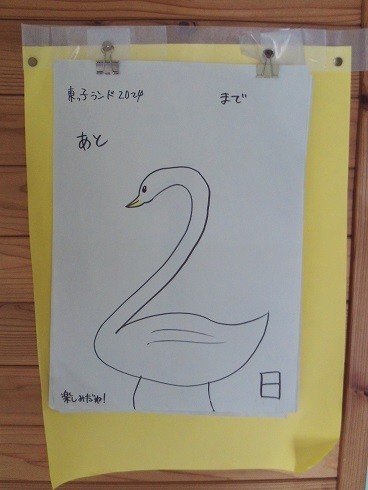 東っ子ランド2024 まで
あと
日
楽しみだね!